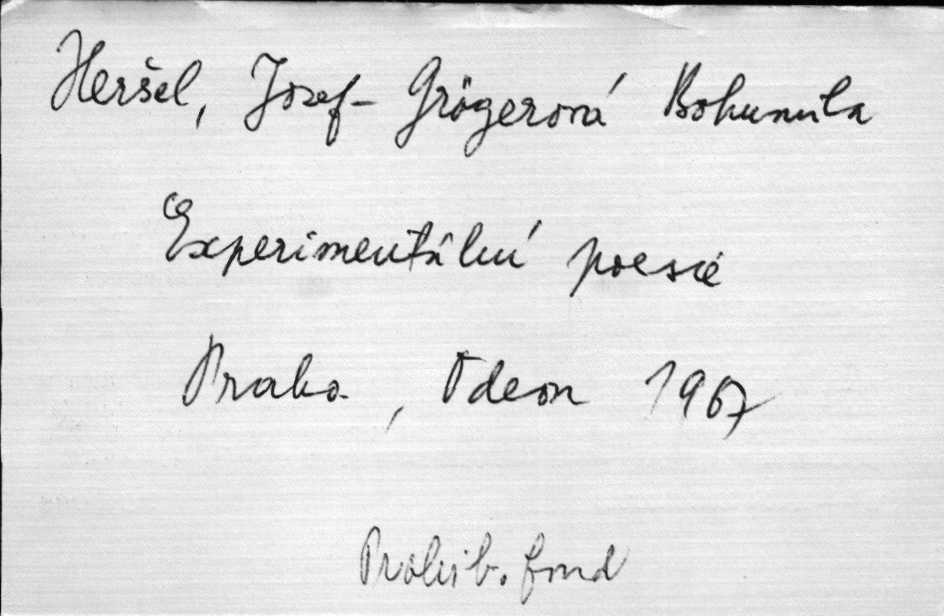 Heršel, Josef - Grögerová Bohumila
Experimentální poesie
Praha, Odeon 1967
Prohib. fond